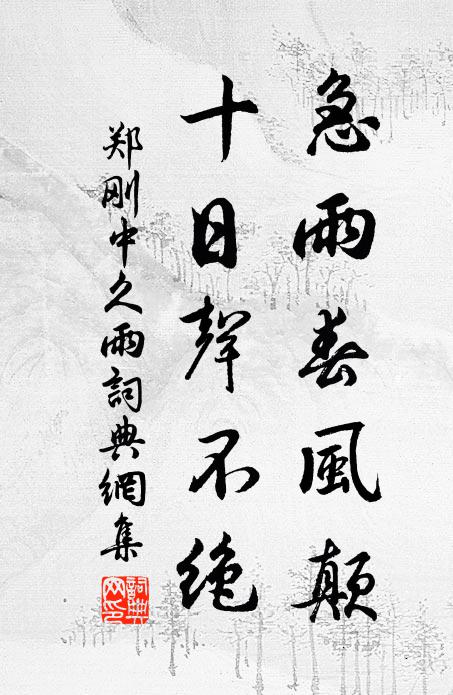 急雨春風顛
十日聲不絶
郑刚中久雨詞典網集
詞典網印